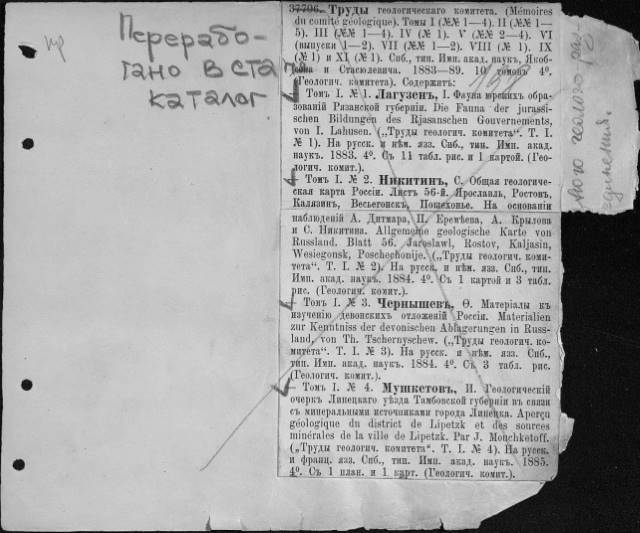 пр
Перерабо-
тано в ста
каталог
37706. Труды геологическаго комитета. (Mémoires
du comité géologique). Томы I (№№ 1—4). II (№№ 1—
5). III (№№ 1—4). IV (№ 1). V (№№ 2—4). VI
(выпуски 1—2). VII (№№ 1—2). VIII (№ 1). IX
(№ 1) и XI (№ 1). Спб., тип. Имп. акад. наук., Якоб-
сона и Стасюлевича. 1883—89. 10 томовъ 4⁰.
(Геологич. комитета). Содержитъ:
Томъ I. № 1. Лагузенъ, I. Фауна юрскихъ обра-
зованій Рязанской губерніи. Die Fauna der jurassi-
schen Bildungen des Rjasanschen Gouvernements,
von I. Lahusen. („Труды геологич. комитета“. Т. I.
№ 1). На русск. и нѣм. язз. Спб., тип. Имп. акад.
наук. 1883. 4⁰. Съ 11 табл. рис. и 1 картой. (Гео-
логич. комит.).
Томъ I. № 2. Никитинъ, С. Общая геологиче-
ская карта Россіи. Листъ 56-й. Ярославль, Ростовъ,
Калязинъ, Весьегонскъ, Пошехонье. На основаніи
наблюденій А. Дитмара, П. Еремѣева, А. Крылова
и С. Никитина. Allgemeine geologische Karte von
Russland. Blatt 56. Jaroslawl, Rostov, Kaljasin,
Wesiegonsk, Poschechonije. („Труды геологич. коми-
тета“. Т. I. № 2). На русск. и нѣм. язз. Спб., тип.
Имп. акад. наук. 1884. 4⁰. Съ 1 картой и 3 табл.
рис. (Геологич. комит.).
Томъ I. № 3. Чернышевъ, Ѳ. Матеріалы къ
изученію девонскихъ отложеній Россіи. Materialien
zur Kenntniss der devonischen Ablagerungen in Russ-
land, von Th. Tschernyschew. („Труды геологич. ко-
митета“. Т. I. № 3). На русск. и нѣм. язз. Спб.,
тип. Имп. акад. наук. 1884. 4⁰. Съ 3 табл. рис.
(Геологич. комит.).
Томъ I. № 4. Мушкетовъ, И. Геологическій
очеркъ Липецкаго уѣзда Тамбовской губерніи въ связи
съ минеральными источниками города Липецка. Aperçu
géologique du district de Lipetzk et des sources
minérales de la ville de Lipetzk. Par J. Mouchketoff.
(„Труды геологич. комитета“. Т. I. № 4). На русск.
и франц. язз. Спб., тип. Имп. акад. наукъ. 1885.
4⁰. Съ 1 план. и 1 карт. (Геологич. комит.).
геолого раз-